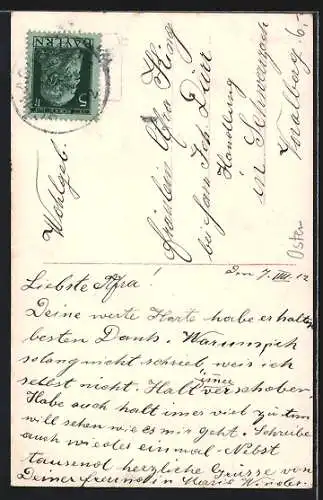 BAYERN
5
Wohlgeb.
Fräulein Afra King
bei Frau Joh. Dürr
Handlung
in Schwarzach
Vorarlberg
Osten
den 7. VIII. 12
Liebste Afra!
Deine werte Karte habe erhalten
besten Dank. Warum ich
solang nicht schrieb, weis ich
selbst nicht. Halt immer verschoben.
Habe auch halt imer viel zu tun
will sehen wie es mir geht. Schreibe
auch wieder einmal. Nebst
tausend herzliche Grüsse von
Deiner freundin Maria Winder.